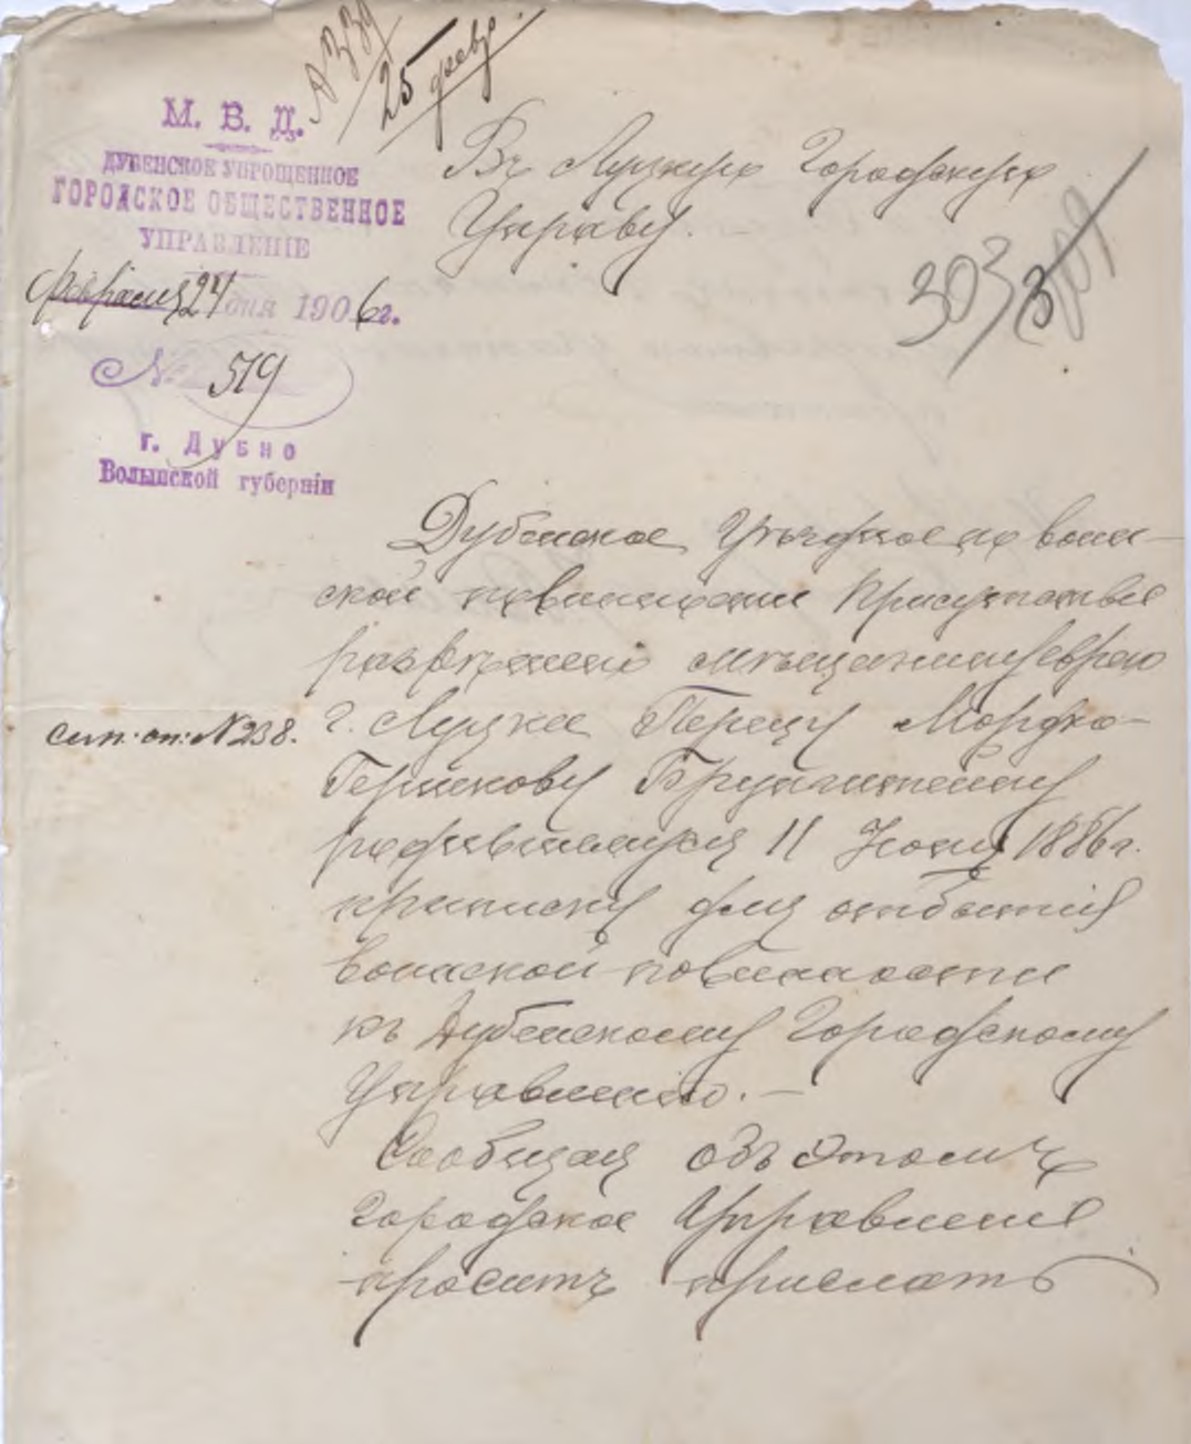 № 339
25 февр.
М. В. Д.
ДУБЕНСКОЕ УПРОЩЕННОЕ
ГОРОДСКОЕ ОБЩЕСТВЕННОЕ
УПРАВЛЕНІЕ
Февраля 24 дня 1906 г.
№ 519
г. Дубно
Волынской губерніи
Въ Луцкую Городскую
Управу.
303
Дубенское Уѣздное по воин-
ской повинности Присутствіе
разрѣшило мѣщанину еврею
сем. сп. № 238.
г. Луцка Перецу Мордко-
Гершкову
родившемуся 11 Іюня 1886 г.
приписку для отбытія
воинской повинности
къ Дубенскому Городскому
Управленію. —
Сообщая объ этомъ
Городское Управленіе
проситъ прислать